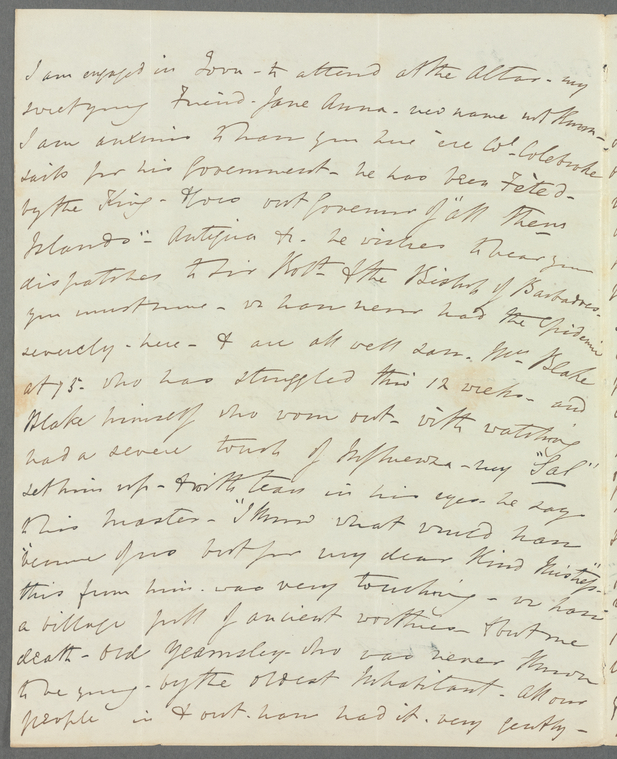 I am engaged in Town - to attend at the Altar - my
Friend - Jane Anna - new name not known -
I am anxious to have you here 'ere Col. Colebrooke
sails for his Government - he has been Fêted -
by the King - & goes out Governor of "all them
Islands" - Antigua &c. he wishes to bear your
dispatches to Sir Robt. & the Bishop of Barbadoes -
you must come - we have never had the Epidemic
severely - here - & are all well save - Mrs. Blake
at 75 - who has struggled this 12 weeks - and
Blake himself who worn out - with watching
had a severe touch of Influenza - my "Sal"
set him up - & with tears in his eyes - he says
to his master - "I know what would have
"become of us but for my dear kind Mistress" -
this from him - was very touching - we have
a village full of ancient worthies - & but one
death - old Yeamsley - who was never known
to be young - by the oldest Inhabitant - All our
people in & out - have had it - very gently -